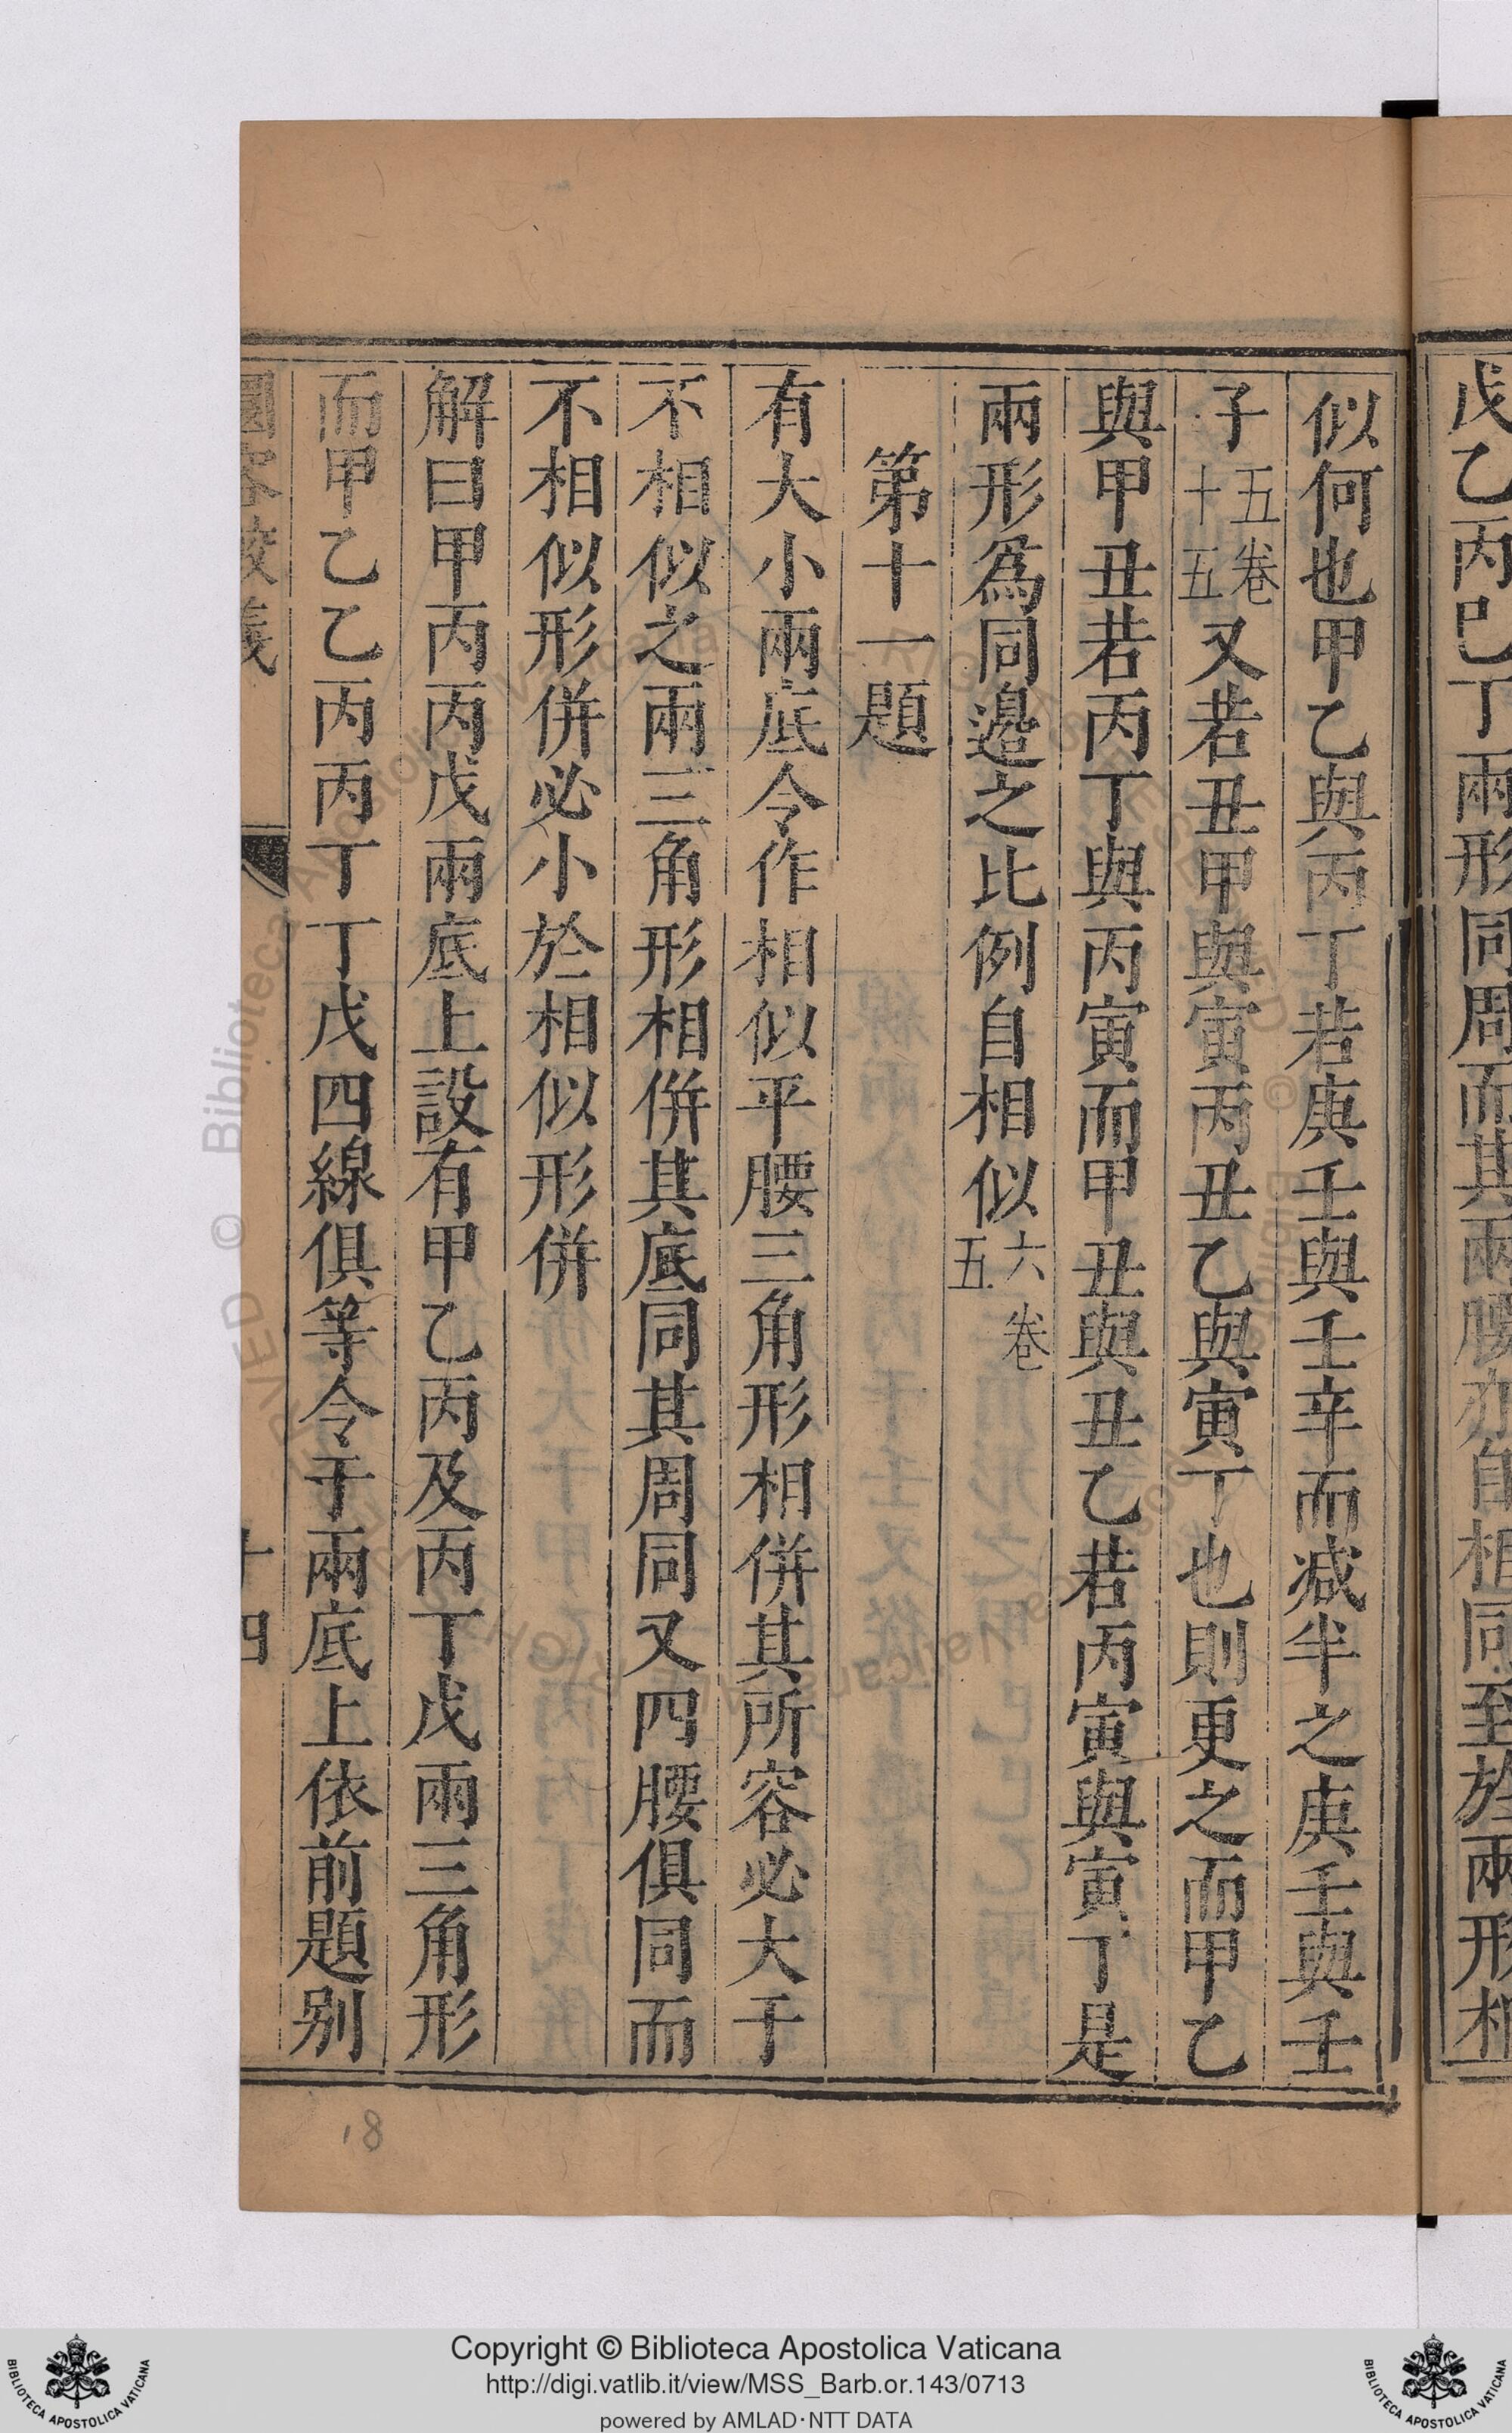 戊乙丙巳丁兩形同周而其兩腰亦自相同至於兩形相
似何也甲乙與丙丁若庚壬與壬辛而减半之庚壬與壬
子五卷十五又若丑甲與寅丙丑乙與寅丁也則更之而甲乙
與甲丑若丙丁與丙寅而甲丑與丑乙若丙寅與寅丁是
兩形爲同邉之比例自相似六卷五
第十一題
有大小兩底令作相似平腰三角形相併其所容必大于
不相似之兩三角形相併其底同其周同又四腰俱同而
不相似形併必小於相似形併
解曰甲丙丙戊兩底上設有甲乙丙及丙丁戊兩三角形
而甲乙乙丙丙丁丁戊四線俱等令于兩底上依前題别
圜容較義
十四
18
Copyright © Biblioteca Apostolica Vaticana
http://digi.vatlib.it/view/MSS_Barb.or.143/0713
powered by AMLAD·NTT DATA
BIBLIOTECA APOSTOLICA VATICANA
BIBLIOTECA APOSTOLICA VATICANA